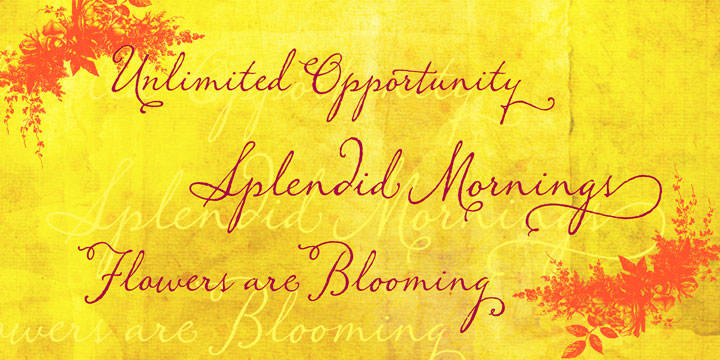 Unlimited Opportunity
Splendid Mornings
Flowers are Blooming